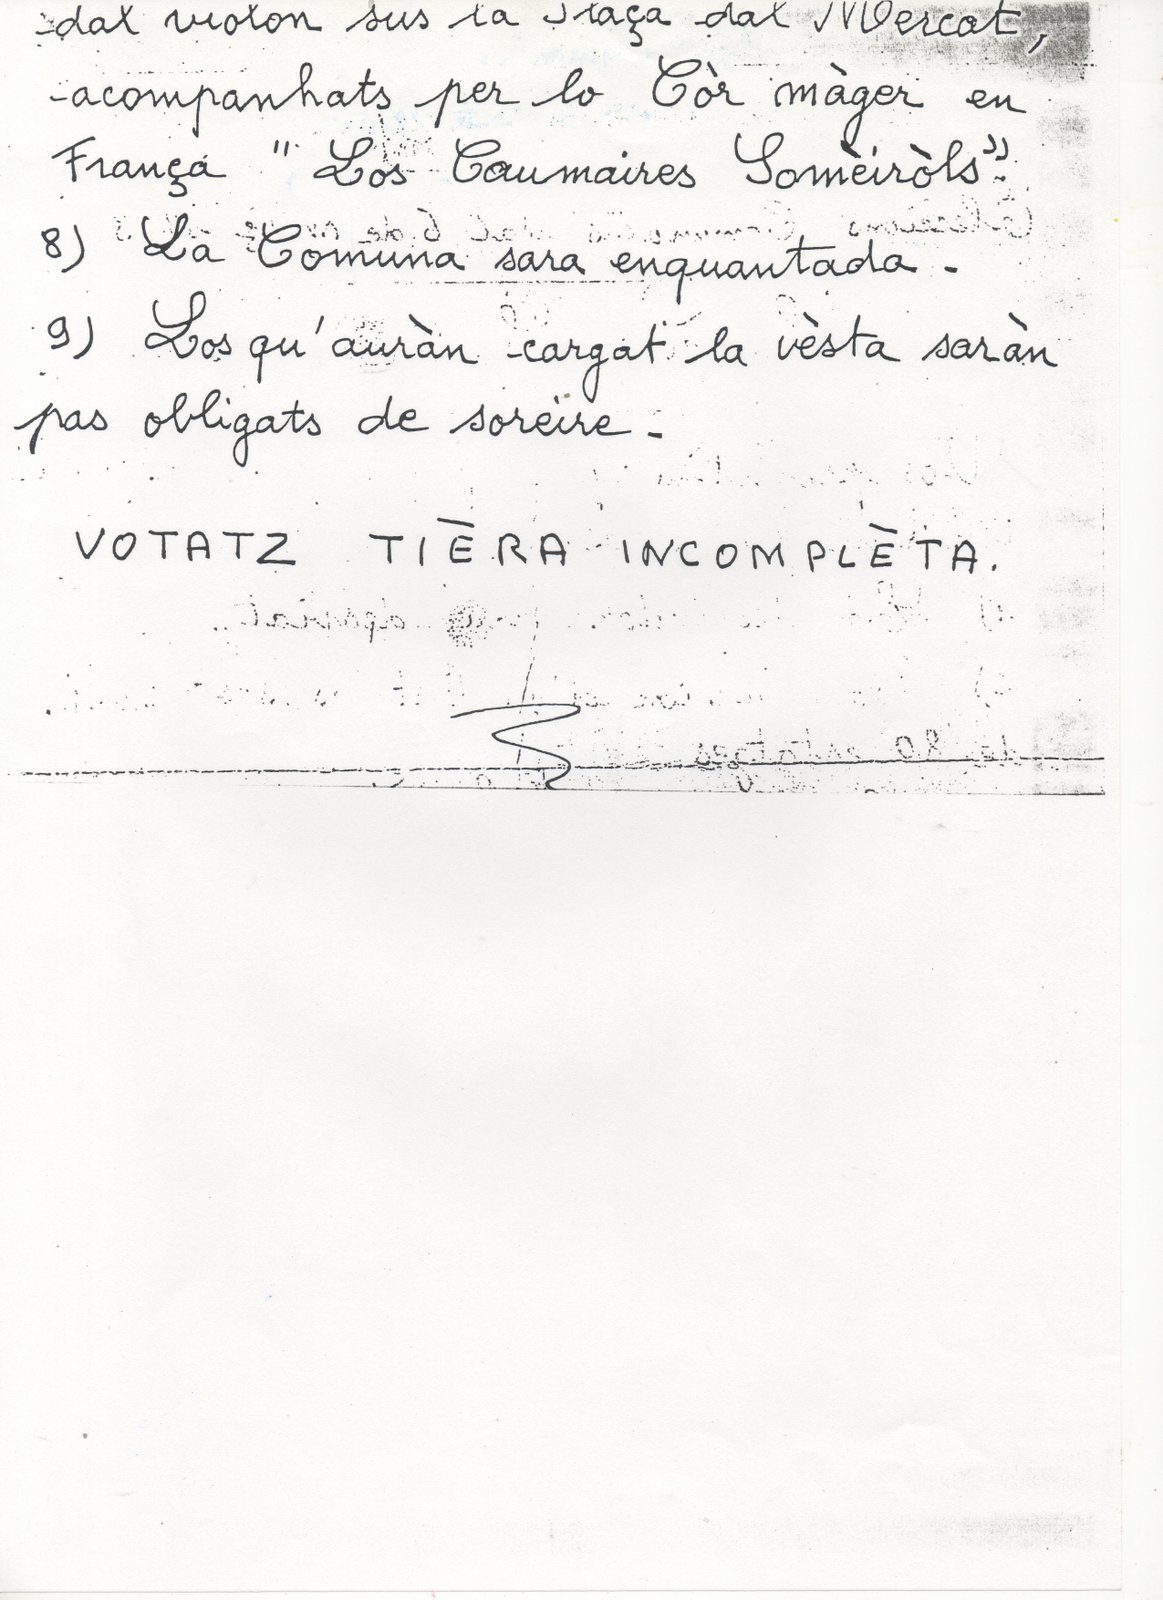 dal violon sus la Plaça dal Mercat,
acompanhats per lo Còr màger en
França "Los Caumaires Somèiròls".
8) La Comuna sara enquantada.
9) Los qu'auràn cargat la vèsta saràn
pas obligats de soreire.
VOTATZ TIÈRA INCOMPLÈTA.